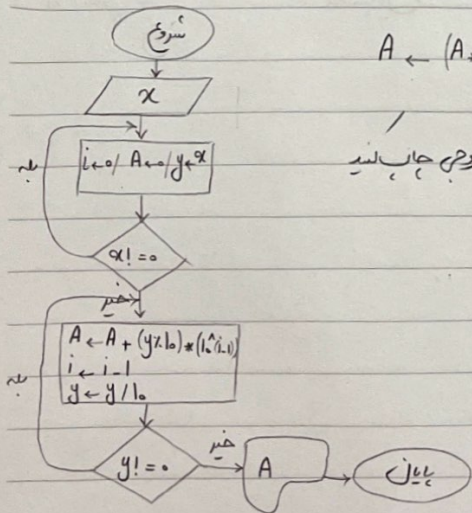 شروع
A ← (A+
x
i←0 / A←0 / y←x
چاپ کنید
بله
x! = 0
خیر
A ← A + (y%10) * (10^(i-1))
i ← i - 1
y ← y / 10
بله
y! = 0
خیر
A
پایان